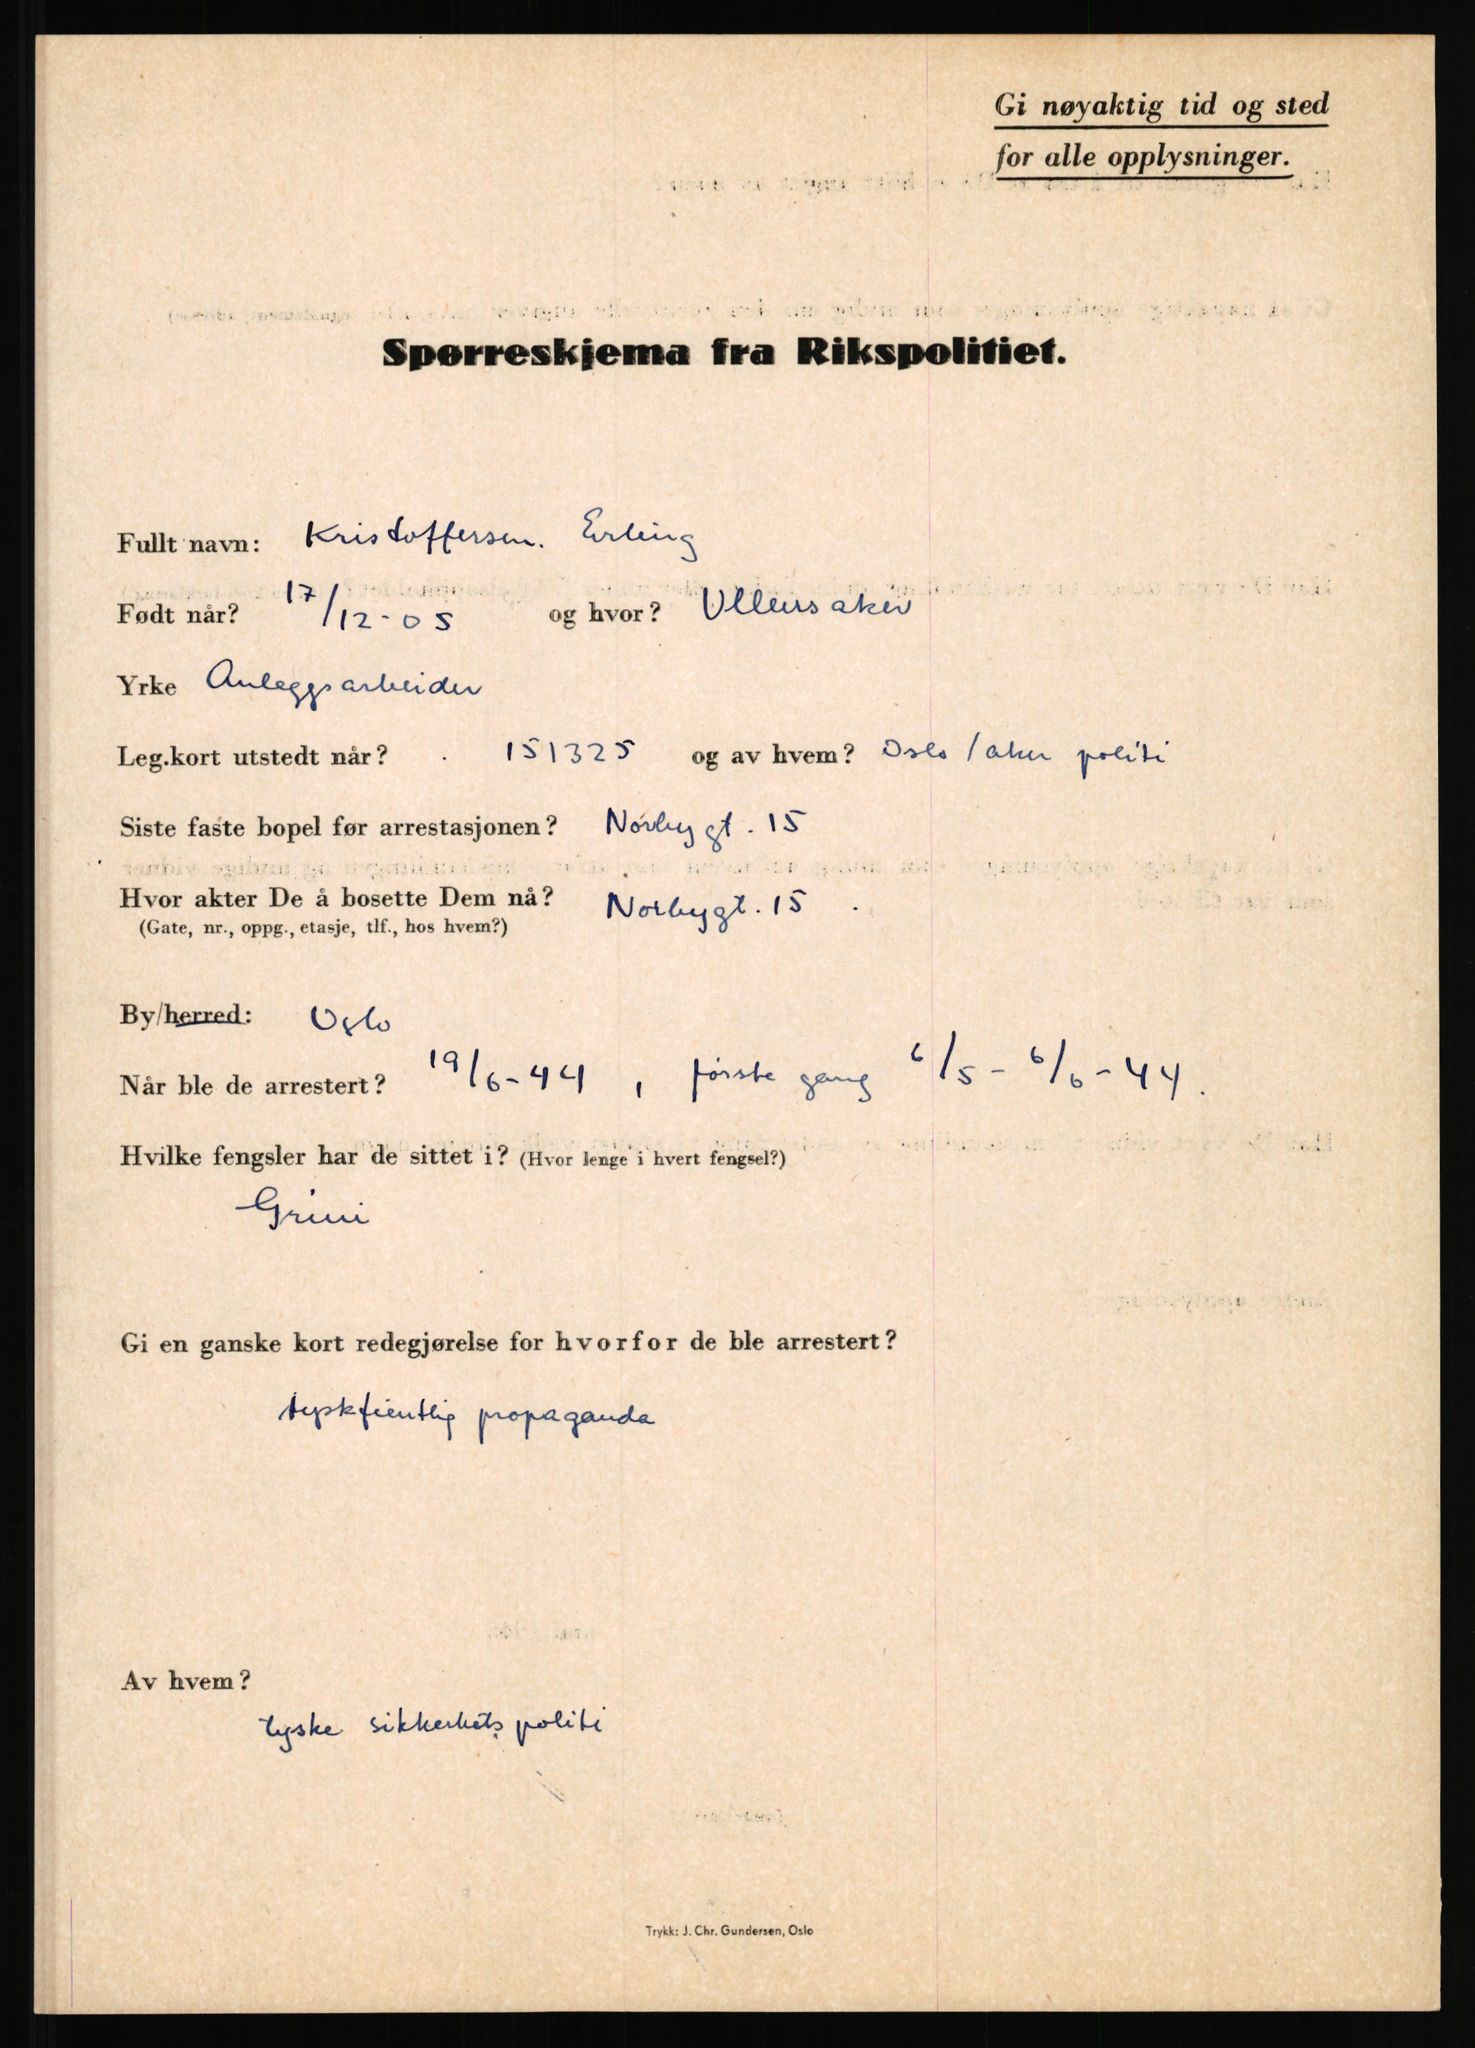 Gi nøyaktig tid og sted
for alle opplysninger.
Spørreskjema fra Rikspolitiet.
Fullt navn: Kristoffersen. Erling
Født når? 17/12-05 og hvor? Ullensaker
Yrke Anleggsarbeider
Leg.kort utstedt når? 151325 og av hvem? Oslo / aker politi
Siste faste bopel før arrestasjonen? Norbygt. 15
Hvor akter De å bosette Dem nå? Norbygt. 15
(Gate, nr., oppg., etasje, tlf., hos hvem?)
By/herred: Oslo
Når ble de arrestert? 19/6-44, første gang 6/5 - 6/6-44.
Hvilke fengsler har de sittet i? (Hvor lenge i hvert fengsel?)
Grini
Gi en ganske kort redegjørelse for hvorfor de ble arrestert?
tyskfientlig propaganda
Av hvem?
tyske sikkerhetspoliti
Trykk: J. Chr. Gundersen, Oslo